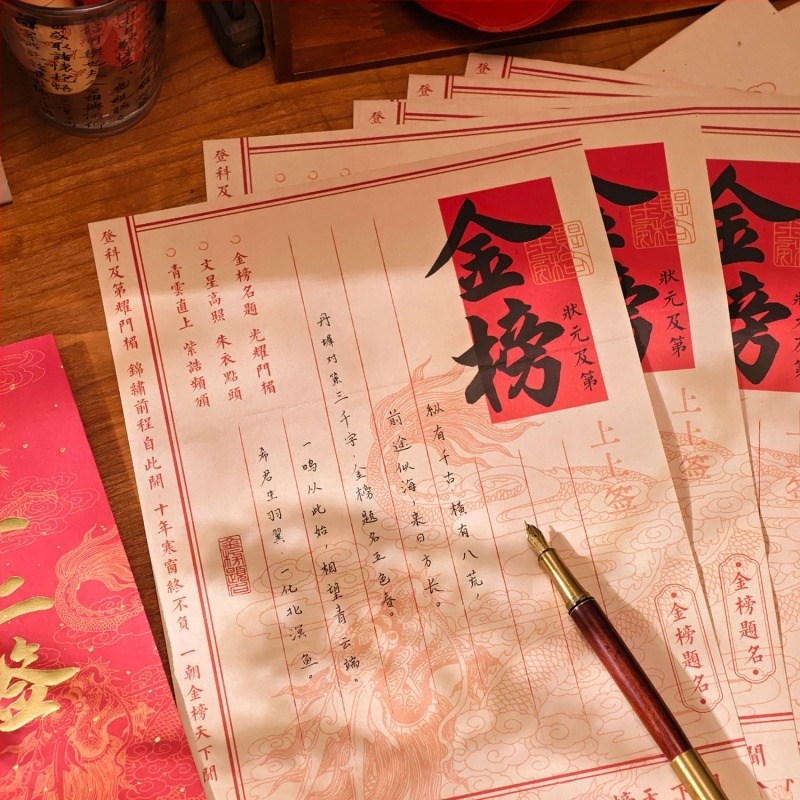 金榜
狀元及第
上上签
金榜題名
纵有千古,横有八荒,
前途似海,来日方长。
丹墀对策三千字,金榜题名五色春。
一鸣从此始,相望青云端。
希君生羽翼,一化北溟鱼。
金榜名題 光耀門楣
文星高照 朱衣點頭
青雲直上 紫誥頻頒
金榜題名
登科及第耀門楣 錦繡前程自此開 十年寒窗終不負 一朝金榜天下聞
金榜
狀元及第
上上签
金榜題名
登科及
金榜
登
登
登
上签